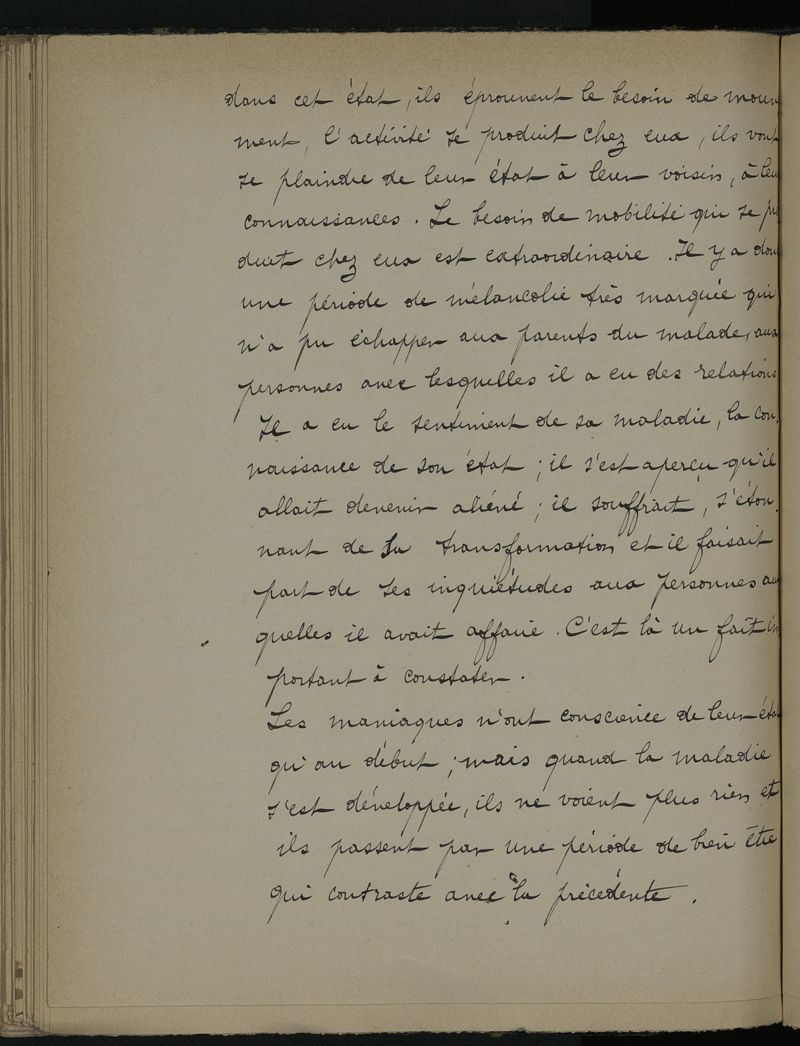 dans cet état, ils éprouvent le besoin de mouv
ment, l'activité se produit chez eux, ils vont
se plaindre de leur état à leur voisin, à leu
connaissances. Le besoin de mobilité qui se pr
duit chez eux est extraordinaire. Il y a don
une période de mélancolie très marquée qui
n'a pu échapper aux parents du malade, aux
personnes avec lesquelles il a eu des relations
Il a eu le sentiment de sa maladie, la con-
naissance de son état ; il s'est aperçu qu'il
allait devenir aliéné ; il souffrait, s'éton-
nant de sa transformation et il faisait
part de ses inquiétudes aux personnes au
quelles il avait affaire. C'est là un fait im
portant à constater.
Les maniaques n'ont conscience de leur éta
qu'au début ; mais quand la maladie
s'est développée, ils ne voient plus rien et
ils passent par une période de bien être
qui contraste avec la précédente.